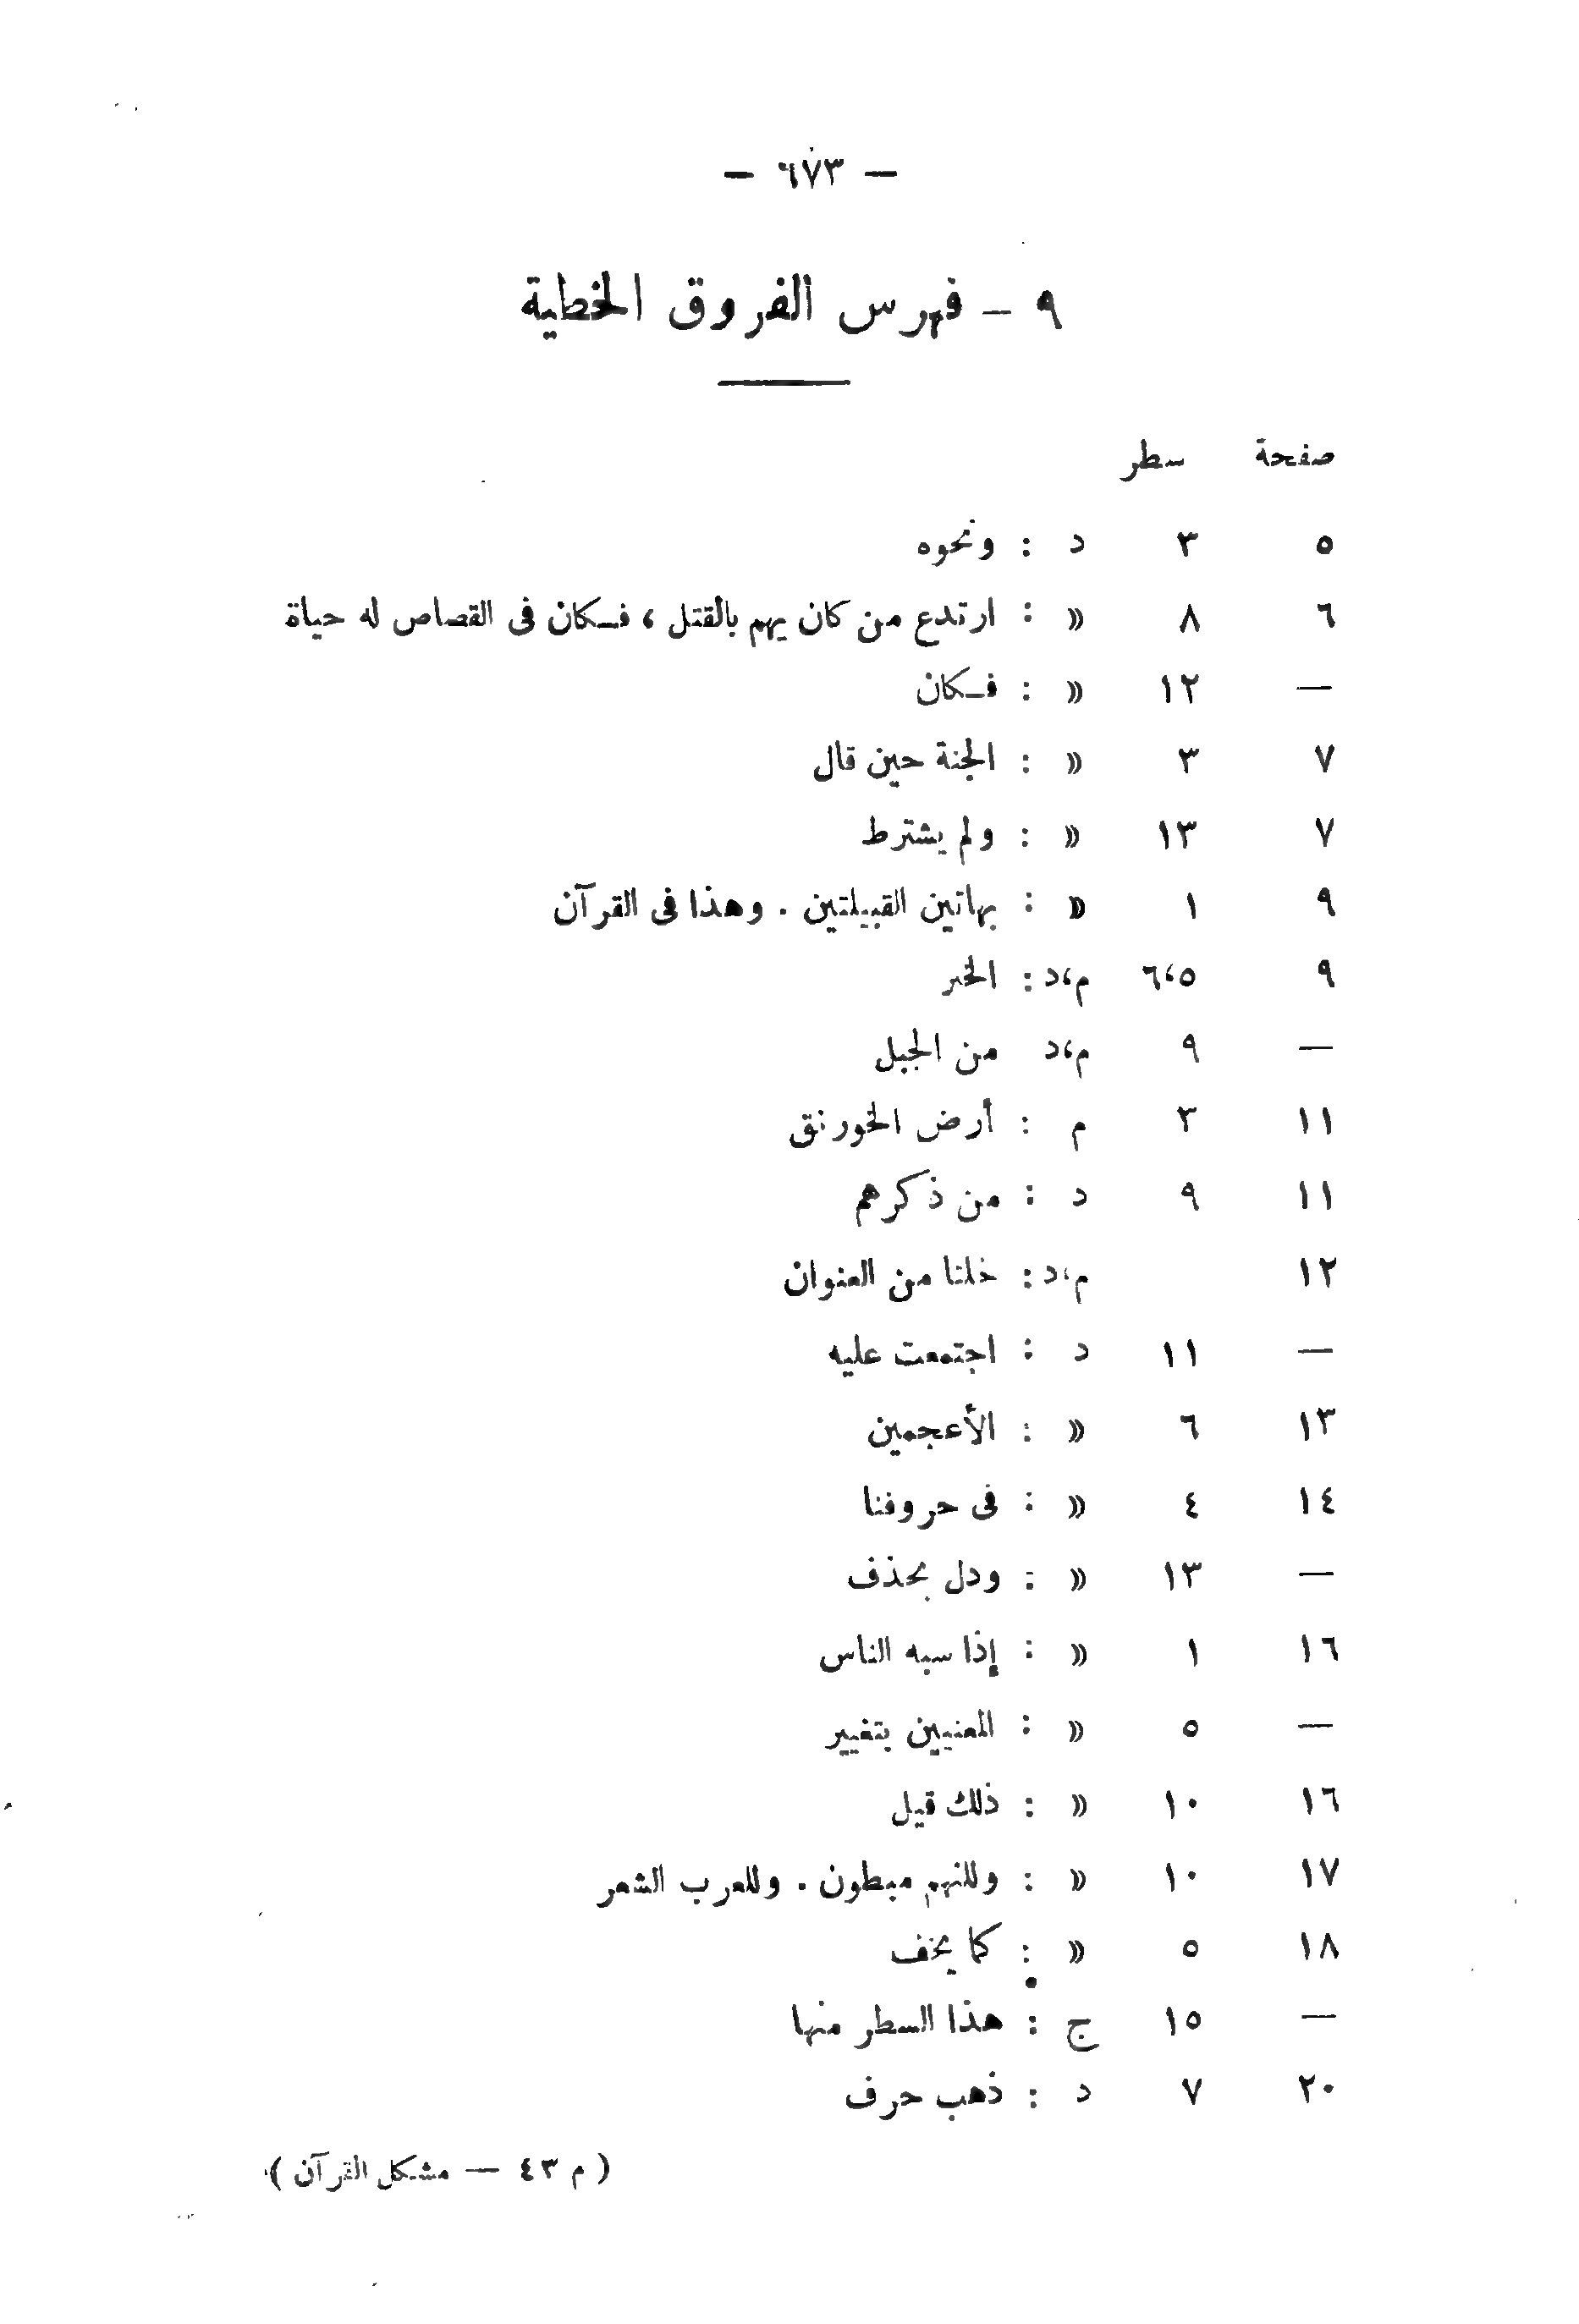 — ٦٧٣ —
٩ – فهرس الفروق الخطية
صفحة سطر
٥ ٣ د : ونحوه
٦ ٨ « : ارتدع من كان يهم بالقتل ، فكان فى القصاص له حياة
— ١٢ « : فكان
٧ ٣ « : الجنة حين قال
٧ ١٣ « : ولم يشترط
٩ ١ « : بهاتين القبيلتين . وهذا فى القرآن
٩ ٦،٥ م،د : الخبر
— ٩ م،د من الجبل
١١ ٣ م : أرض الخورنق
١١ ٩ د : من ذكرهم
١٢ م،د : خلتا من العنوان
— ١١ د : اجتمعت عليه
١٣ ٦ « : الأعجمين
١٤ ٤ « : فى حروفنا
— ١٣ « : ودل بحذف
١٦ ١ « : إذا سبه الناس
— ٥ « : المعنيين بتغيير
١٦ ١٠ « : ذلك قيل
١٧ ١٠ « : وللنهم مبطون . وللعرب الشعر
١٨ ٥ « : كما يخف
— ١٥ ج : هذا السطر منها
٢٠ ٧ د : ذهب حرف
( م ٤٣ — مشكل القرآن )